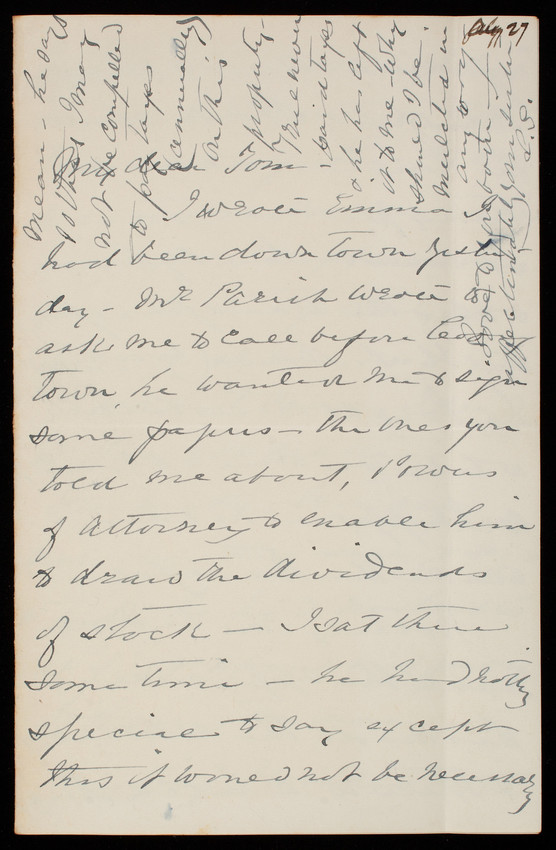 July 27
My dear Tom -
I wrote Emma I
had been down town yester
day - Mr Parish wrote to
ask me to call before I left
town, he wanted me to sign
some papers - the ones you
told me about, Powers
of Attorney to enable him
to draw the dividends
of stock - I sat there
some time - he had nothing
special to say except
this it would not be necessary
mean - he says
I may
not be compelled
to pay taxes
annually
on this
property -
never
paid taxes
& he has left
it to me - why
should I be
mulcted in
any way
Love to you both -
Affectionately your sister
L. S.